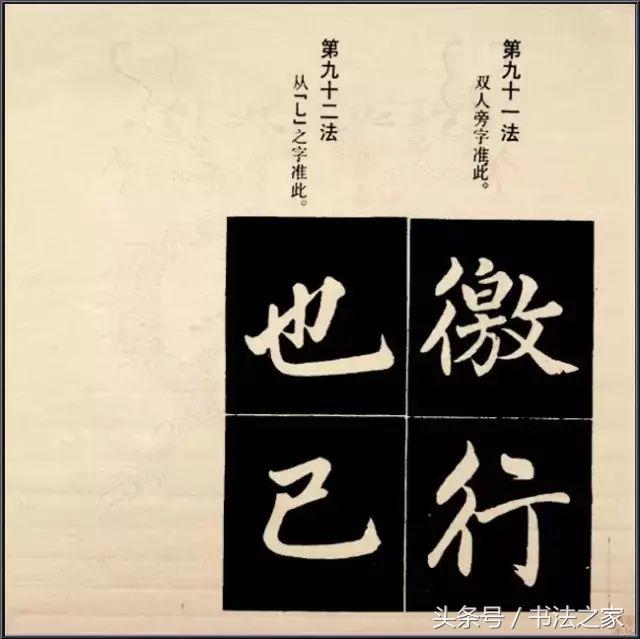 第九十一法
双人旁字准此。
徼行
第九十二法
从「乚」之字准此。
也已
头条号 / 书法之家